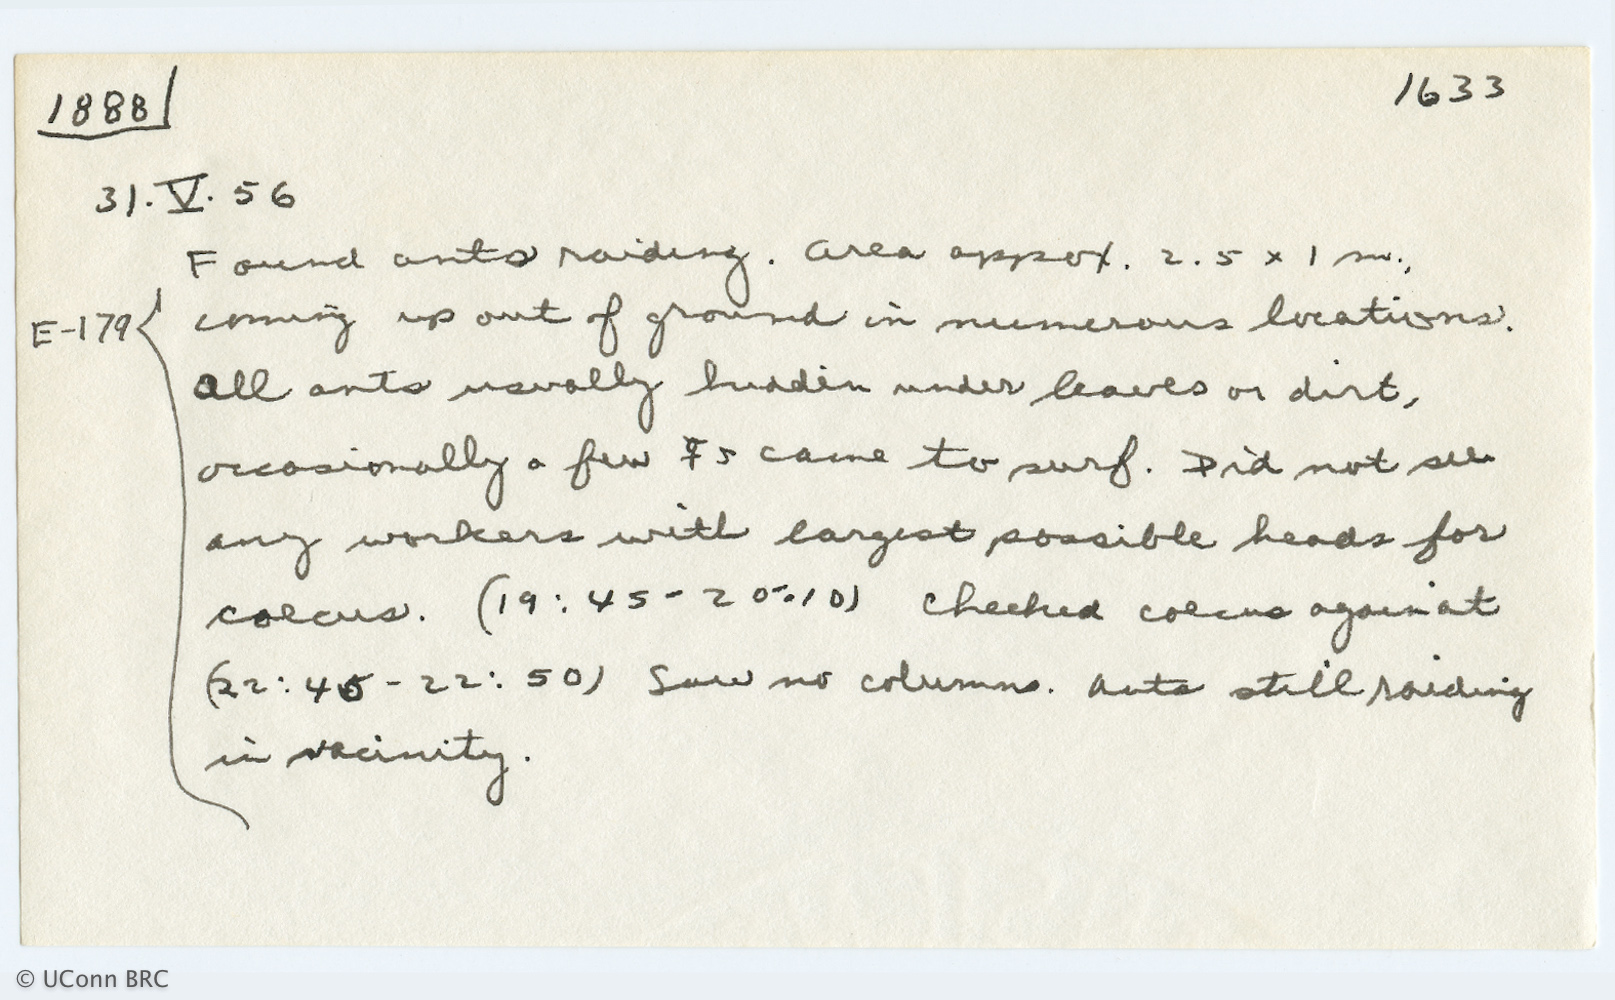 1888
1633
31.V.56
Found ants raiding. Area approx. 2.5 x 1 m.,
E-179
coming up out of ground in numerous locations.
All ants usually hidden under leaves or dirt,
occasionally a few ☿s came to surf. Did not see
any workers with largest possible heads for
coecus. (19:45-20:10) Checked coecus again at
(22:45-22:50) Saw no columns. Ants still raiding
in vicinity.
© UConn BRC